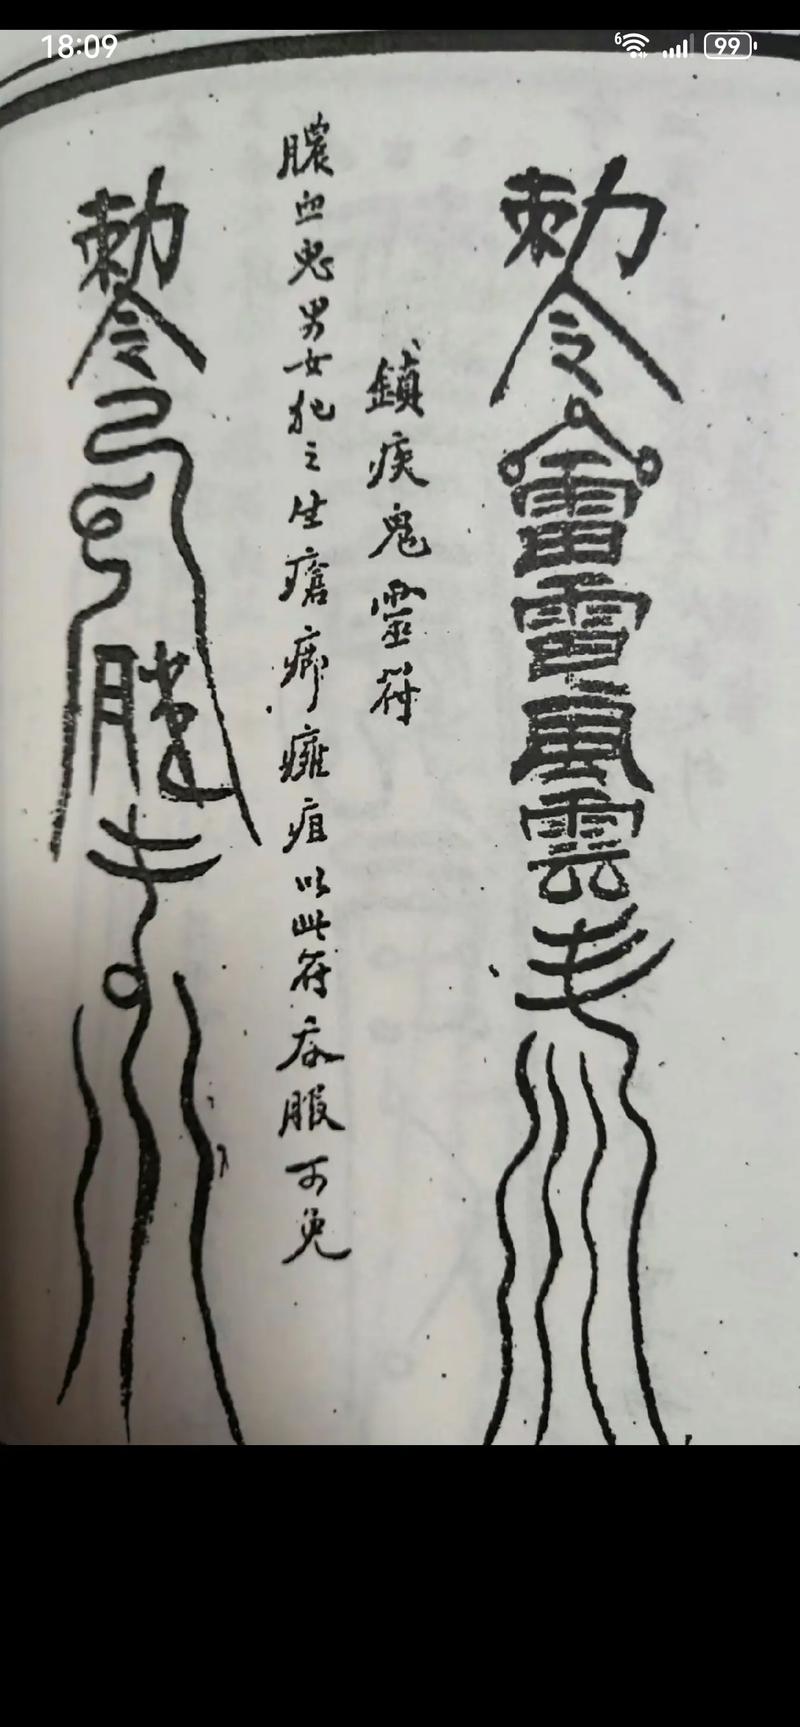 18:09
6
99
勅令雷雷風雲
鎮疾鬼靈符
膿血鬼男女犯之生瘡癤癰疽以此符吞服可免
勅令